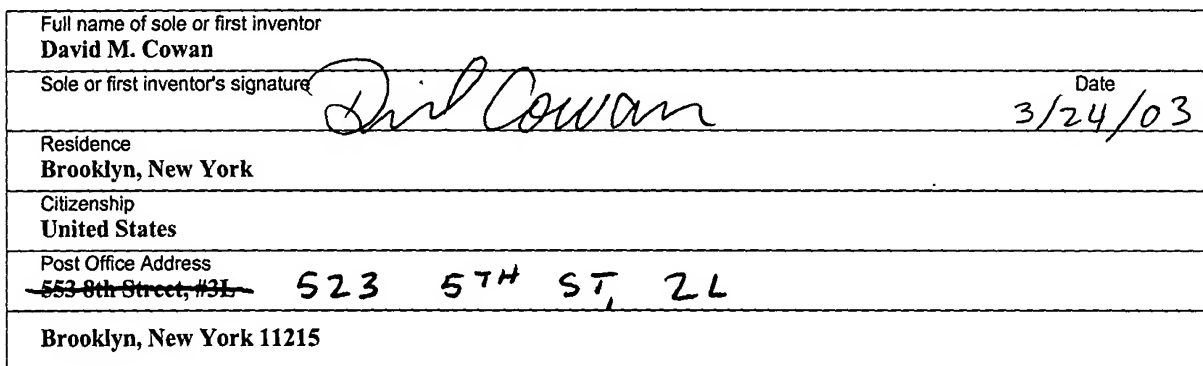 Full name of sole or first inventor
David M. Cowan
Sole or first inventor's signature David Cowan Date
3/24/03
Residence
Brooklyn, New York
Citizenship
United States
Post Office Address
553 8th Street, #3L 523 5TH ST, 2L
Brooklyn, New York 11215